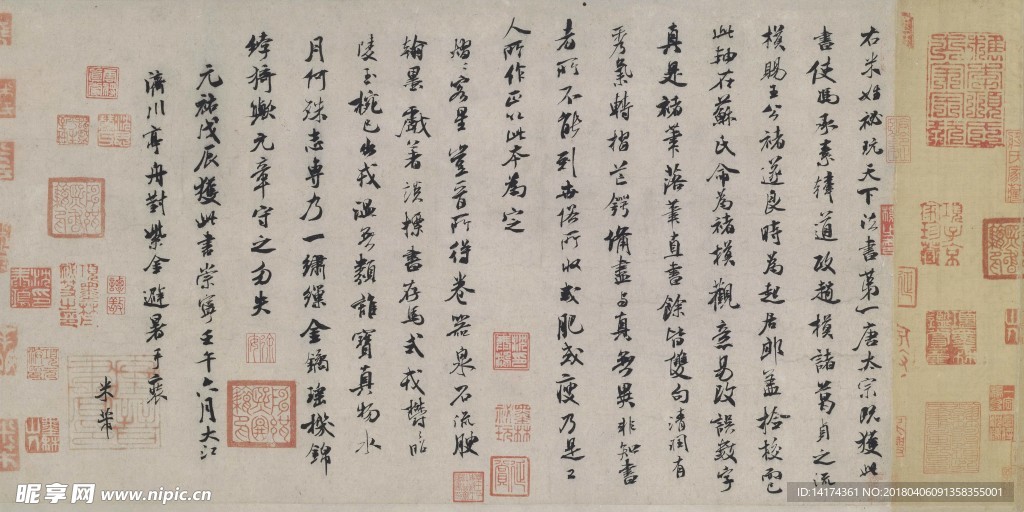 右米姓秘玩天下法书第一唐太宗既獲此
書使馮承素韓道政趙模諸葛貞之流
模賜王公褚遂良時為起居郎盖檢校而已
此軸在蘇氏命為褚模觀意易改誤數字
真是褚筆落筆直書餘皆雙勾清潤有
秀氣轉摺芒鍔備盡与真無異非知書
者所不能到世俗所收或肥或瘦乃是工
人所作正以此本為定
熠熠客星豈晋所得卷器泉石流腴
翰墨戲著談標書存馬式戎
陵玉椀已出戎温吾類誰寶真物水
月何殊志專乃一繡繅金鐍瑶機錦
綷猗歟元章守之勿失
元祐戊辰獲此書崇寧壬午六月大江
濟川亭舟對紫金避暑手裝
米芾
昵享网 www.nipic.cn
ID:14174361 NO:20180406091358355001